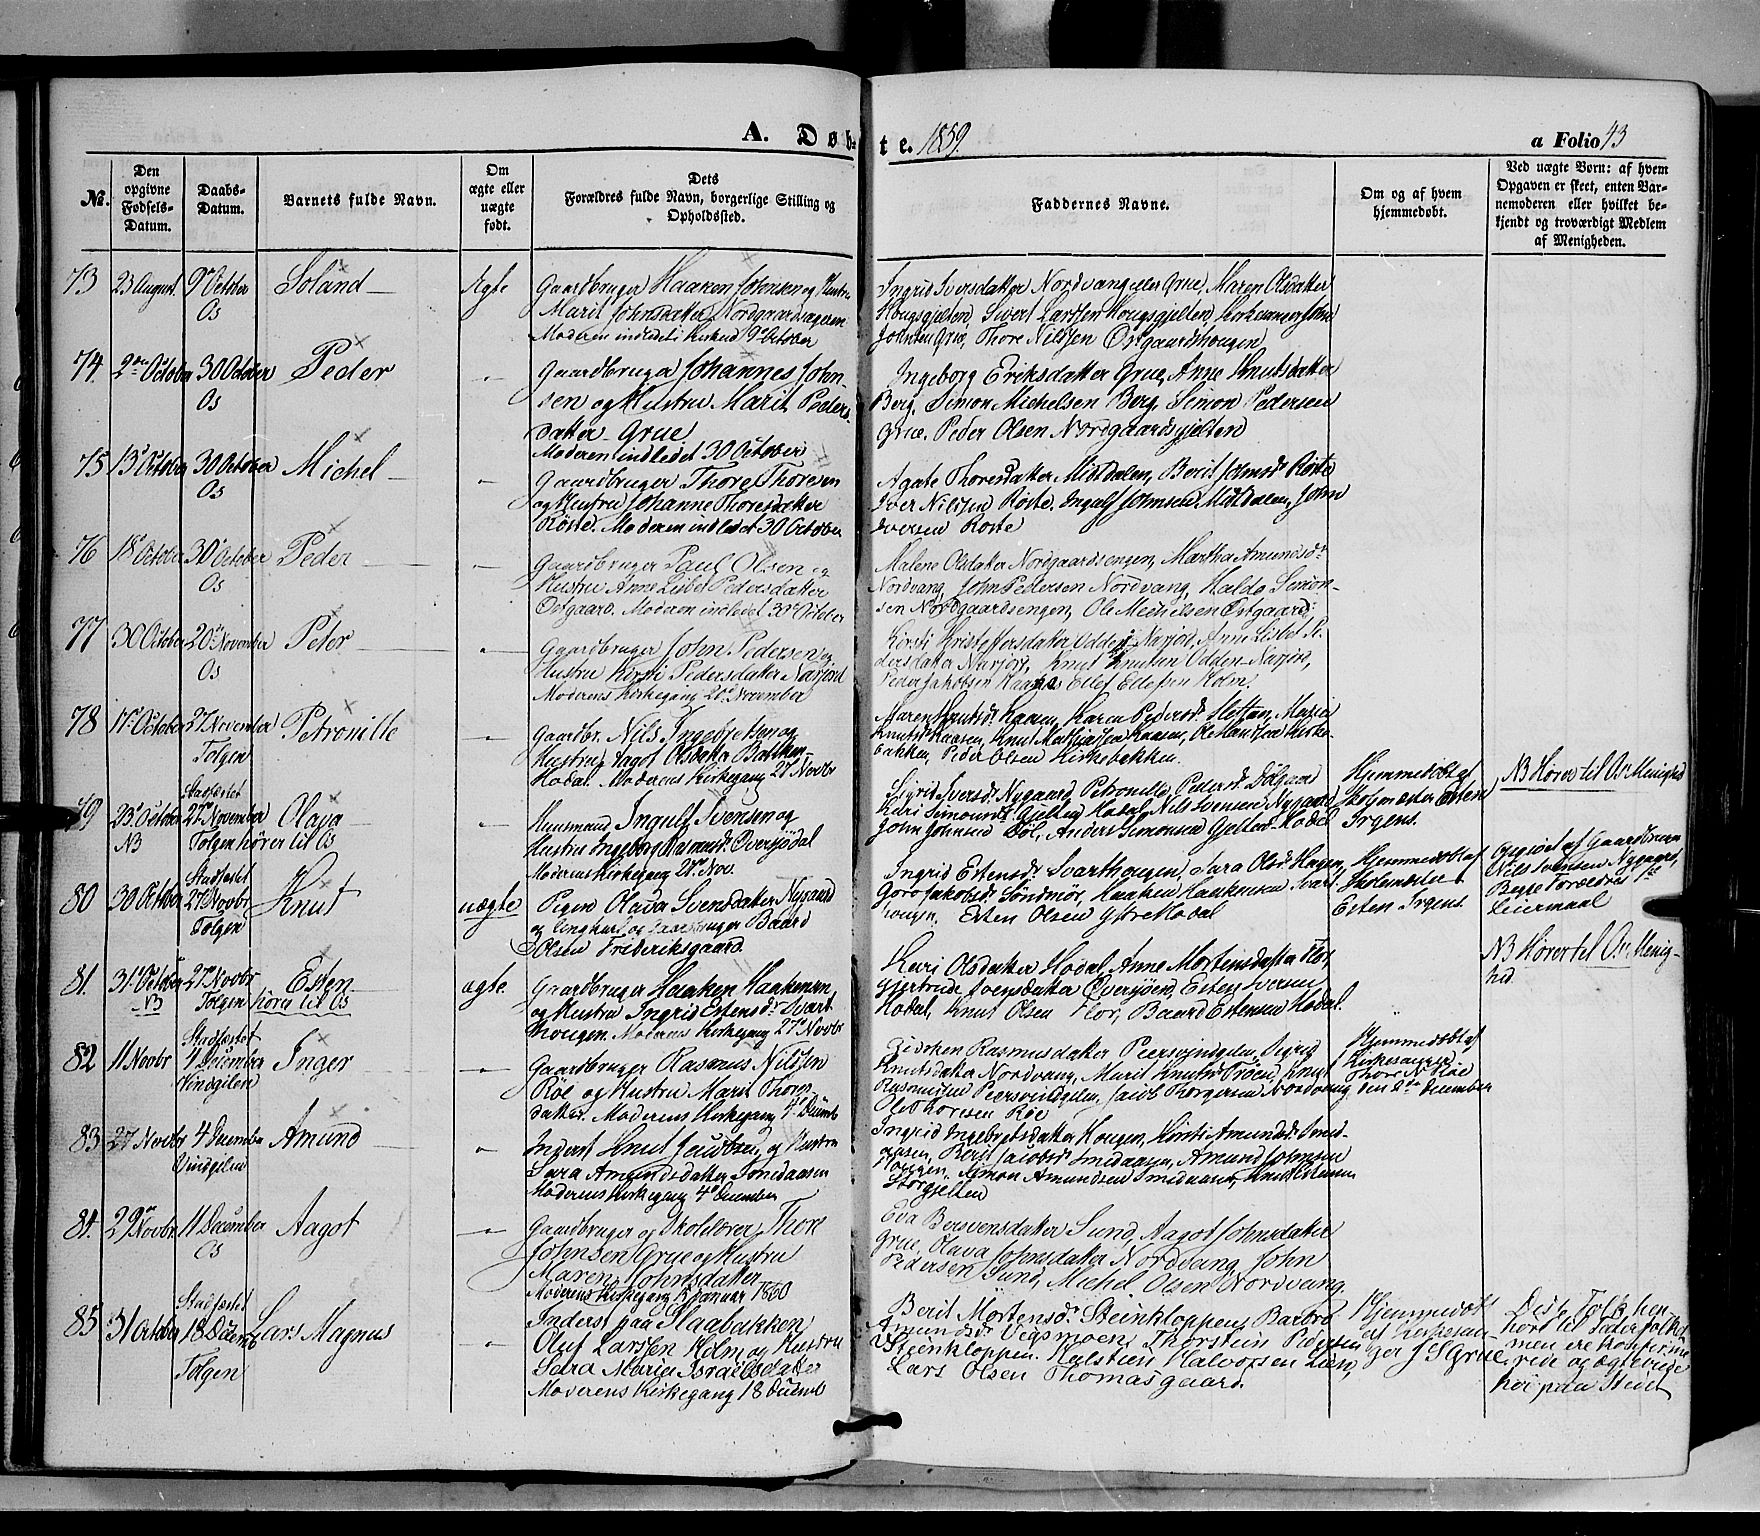 A. Døb-
te. 1859.
a Folio 43
No.
Den
opgivne
Fødsels-
Datum.
Daabs-
Datum.
Barnets fulde Navn.
Om
ægte eller
uægte
født.
Dets
Forældres fulde Navn, borgerlige Stilling og
Opholdssted.
Faddernes Navne.
Om og af hvem
hjemmedøbt.
Ved uægte Børn: af hvem
Opgaven er skeet, enten Bar-
nemoderen eller hvilket be-
kjendt og troværdigt Medlem
af Menigheden.
73 23 August. 9de October Os
Ægte
Gaardbruger Haaken Johnsen og Hustru
Marit Johnsdatter Nordgaardsengen
Moderen indledet i Kirken 9de October
Ingrid Iversdatter Nordvang eller Grue, Maren Olsdatter
Hougsgjelten, Sivert Larssen Hougsgjelten, Kirkesanger John
Johnsen Grue, Thore Nilssen Østgaardshougen
74. 2den October 30 October Os
Peder
Gaardbruger Johannes John-
sen og Hustru Marit Peders-
datter Grue
Moderen indledet 30 October
Ingeborg Eriksdatter Grue, Anne Knutsdatter
Berg, Simon Michelsen Berg, Simon Pedersen
Grue, Peder Olsen Nordgaardsgjelten
75 13de October 30 October Os
Michel
Gaardbruger Thore Thoresen
og Hustru Johanne Thoresdatter
Røste. Moderen indledet 30 October
Agate Thoresdatter Midtdalen, Berit Johnsdr Røste
Iver Nilssen Røste, Ingulf Johnsen Midtdalen, John
Iversen Røste
76 18de October 30 October Os
Peder
Gaardbruger Paul Olsen og
Hustru Anne Lisbet Pedersdatter
Østgaard. Moderen indledet 30 October
Malene Olsdatter Nordgaardsengen, Martha Amundsdr
Nordvang, John Pettersen Nordvang, Haldo Simon-
sen Nordgaardsengen, Ole Michelsen Østgaard.
77 30 October 20de November Os
Peter
Gaardbruger John Pedersen og
Hustru Kirsti Pedersdatter Narjord
Moderens Kirkegang 20de November
Kirsti Kristoffersdatter Odden Narjord, Anne Lisbet Pe-
dersdatter Narjord, Knut Knutsen Odden Narjord,
Peder Jakobsen
78 17de October 27 November Tolgen
Petronille
Gaardbr. Nils Ingebretsen og
Hustru Aagot Olsdatter Bakken
Hodal. Moderens Kirkegang 27 Novbr
Maren Knutsdr Kaasen, Karen Pedersdr Sletten, Marie
Knutsdr Kaasen, Knut Kaasen, Ole Kirke-
bakken, Peder Olsen Kirkebakken.
79 23de October NB
Stadfæstet 27de November Tolgen hører til Os
Olava
Huusmand Ingulf Svensen og
Hustru Ingeborg Rasmusdr Øversjødal
Moderens Kirkegang 27de Nov.
Sigrid Iversdr Nygaard, Petronelle Pedersdr
Kari Simonsdr Gjelten Hodal, Nils Svensen Nygaard
John Johnsen Døl, Anders Simonsen Gjelten Hodal
Hjemmedøbt af
Skolemester Esten
Irgens.
NB Hører til Os Menighed
80 30 October Stadfæstet 27 Novbr Tolgen
Knut
uægte
Pigen Olava Svensdatter Nygaard
og Ungkarl og Gaardbruger Baard
Olsen Frederiksgaard.
Ingrid Estensdr Svarthougen, Sara Olsdr Hagen,
Goro Jakobsdr Søndmør, Haaken Haakensen Svart
hougen, Esten Olsen Ystre Hodal
Hjemmedøbt af
Skolemester
Esten Irgens.
Opgivet af Gaardbruger
Nils Svensen Nygaard,
Begge Forældres 1ste
Leiermaal
81. 31de October NB
27de Novbr Tolgen hører til Os
Esten
ægte.
Gaardbruger Haaken Haakensen
og Hustru Ingrid Estensdr Svart
hougen. Moderens Kirkegang 27de Novbr
Kari Olsdatter Hodal, Anne Mortensdatter Flor,
Gjertrud Svensdatter Øversjøen, Esten Iversen
Hodal, Knut Olsen Flor, Baard Estensen Hodal.
NB Hører til Os Menig-
hed.
82 11 Novbr
Stadfæstet 4 December Vindgilen
Inger
Gaardbruger Rasmus Nilssen
Røe og Hustru Marit Thores
datter. Moderens Kirkegang 4de Decemb
Rasmusdatter Peersvindgilen, Sigrid
Knutsdatter Nordvang, Marit Knutsdr Trøen, Knut
Rasmussen Peersvindgilen, Jacob Thorgersen Nordvang
Ole Thoresen Røe
Hjemmedøbt af
Kirkesanger
Thore N. Røe
den 2den December
83 27 Novbr 4 December Vindgilen
Amund
Inderst Knut Jacobsen og Hustru
Sara Amundsdatter Smedaasen
Moderens Kirkegang 4de December
Ingrid Ingebretsdatter Hougen, Kirsti Amundsdr Smed-
aasen, Berit Jacobsdr Smedaasen, Amund Johnsen
Hougen, Simon Amundsen Smedaasen, Knut Estensen
Storgjelten
84. 29de Novbr 11 December Os
Aagot
Gaardbruger og Skolelærer Thore
Johnsen Grue og Hustru
Maren Johnsdatter
Moderens Kirkegang Januar 1860
Eva Bersvensdatter Sund, Aagot Johnsdatter
Grue, Olava Johnsdatter Nordvang, John
Pedersen Sund, Michel Olsen Nordvang.
85 31 October Stadfæstet 18 Decemb Tolgen
Lars Magnus
Inderst paa Haabakken
Oluf Larssen Holm og Hustru
Sara Maria Israelsdatter
Moderens Kirkegang 18 Decemb
Berit Mortensdr Steinkloppen, Barbro
Amundsdr Vegsmoen, Thorstein Pedersen
Steinkloppen, Halstein Halvorsen Lien,
Lars Olsen Thomasgaard.
Hjemmedøbt
af Kirkesan-
ger J S Grue.
Disse Folk hen-
hører til Taterfolket
men ere konfirme
rede og ægteviede
her paa Stedet